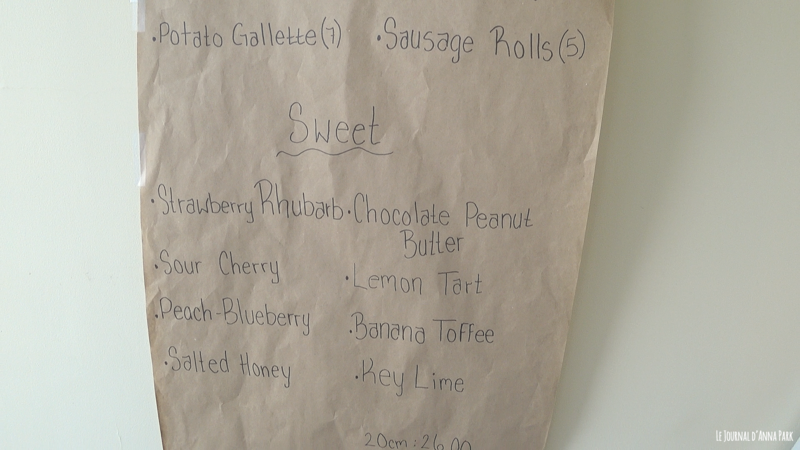 ·Potato Gallette(7) ·Sausage Rolls(5)
Sweet
·Strawberry Rhubarb
·Sour Cherry
·Peach-Blueberry
·Salted Honey
·Chocolate Peanut
Butter
·Lemon Tart
·Banana Toffee
·Key Lime
20cm : 26.00
LE JOURNAL D'ANNA PARK